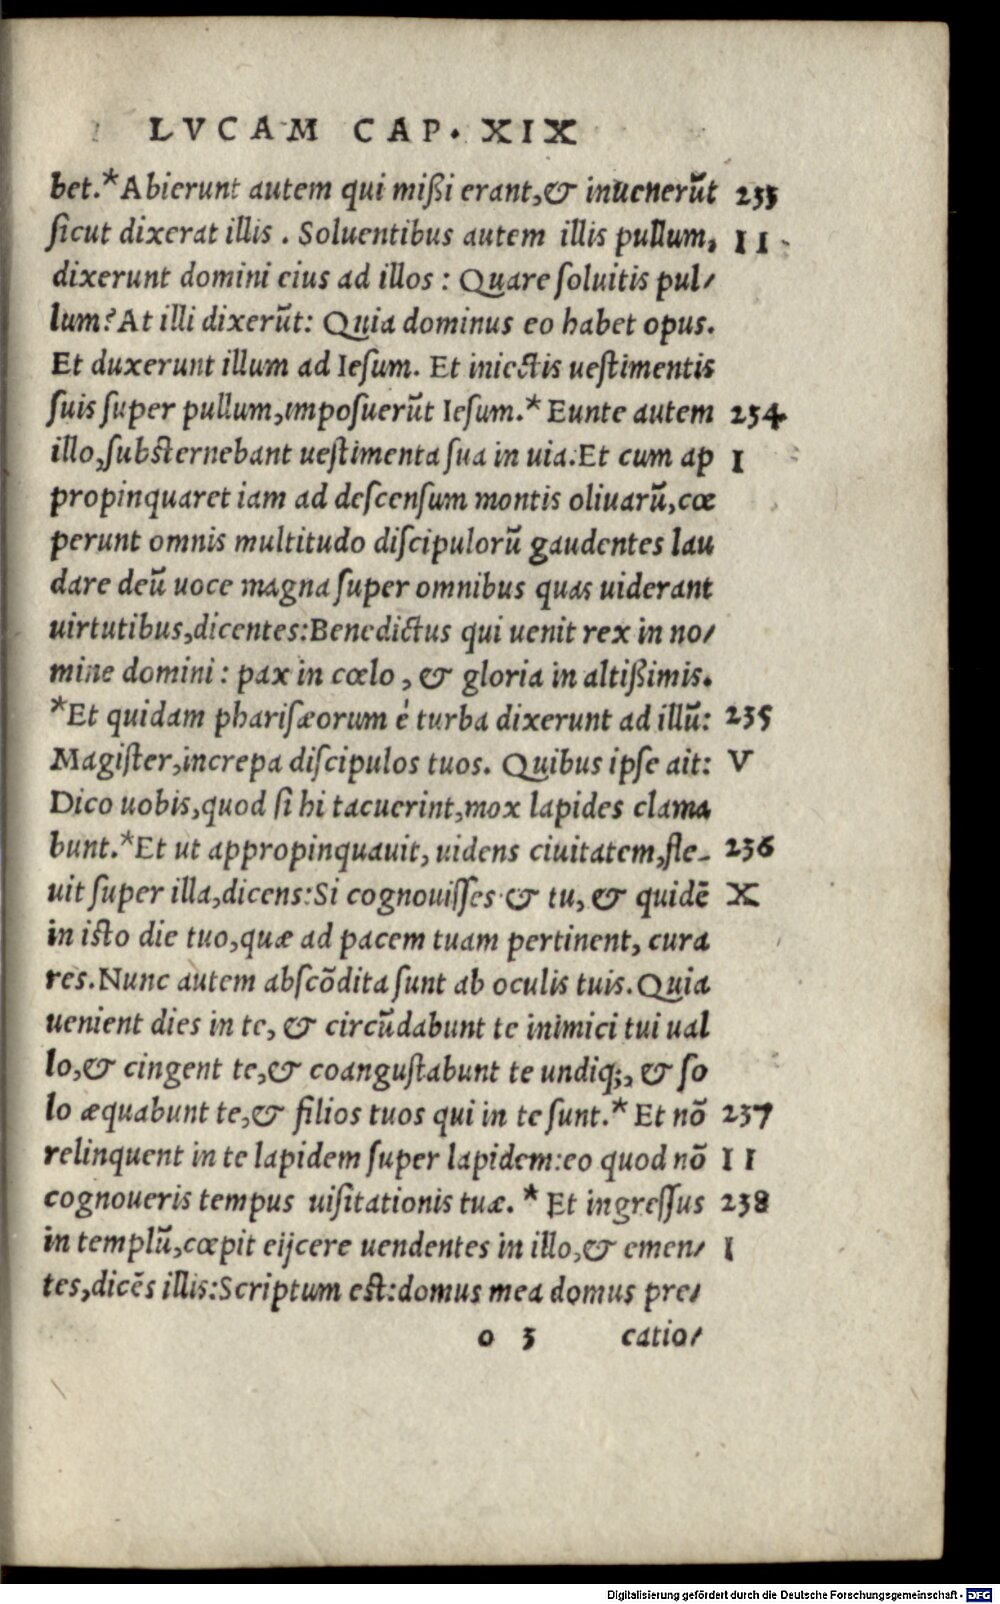 LVCAM CAP. XIX
bet.*Abierunt autem qui mißi erant,& inuenerūt 233
sicut dixerat illis . Soluentibus autem illis pullum, II
dixerunt domini eius ad illos : Quare soluitis pul/
lum? At illi dixerūt: Quia dominus eo habet opus.
Et duxerunt illum ad Iesum. Et iniectis uestimentis
suis super pullum,imposuerūt Iesum.* Eunte autem 234
illo,substernebant uestimenta sua in uia.Et cum ap I
propinquaret iam ad descensum montis oliuarū,cœ
perunt omnis multitudo discipulorū gaudentes lau
dare deū uoce magna super omnibus quas uiderant
uirtutibus,dicentes:Benedictus qui uenit rex in no/
mine domini : pax in cœlo , & gloria in altißimis.
*Et quidam pharisæorum é turba dixerunt ad illū: 235
Magister,increpa discipulos tuos. Quibus ipse ait: V
Dico uobis,quod si hi tacuerint,mox lapides clama
bunt.*Et ut appropinquauit, uidens ciuitatem,fle- 236
uit super illa,dicens:Si cognouisses & tu, & quidē X
in isto die tuo,quæ ad pacem tuam pertinent, cura
res.Nunc autem abscōdita sunt ab oculis tuis. Quia
uenient dies in te, & circūdabunt te inimici tui ual
lo,& cingent te,& coangustabunt te undiq;, & so
lo æquabunt te,& filios tuos qui in te sunt.* Et nō 237
relinquent in te lapidem super lapidem:eo quod nō II
cognoueris tempus uisitationis tuæ. * Et ingressus 238
in templū,cœpit eijcere uendentes in illo,& emen/ I
tes,dicēs illis:Scriptum est:domus mea domus pre/
o 3 catio/
Digitalisierung gefördert durch die Deutsche Forschungsgemeinschaft - DFG